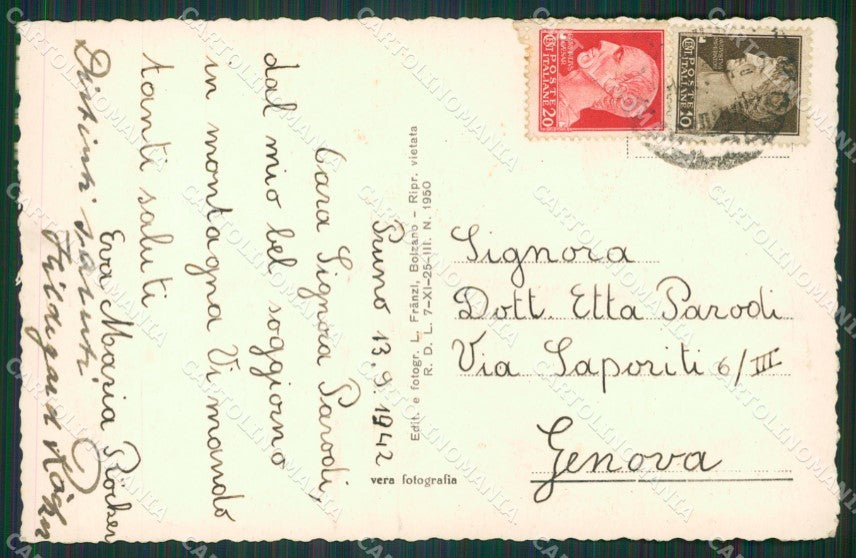 Bruno 13.9.1942
Cara Signora Parodi,
dal mio bel soggiorno
in montagna Vi mando
tanti saluti
Eva Maria Röcker
Distinti saluti
Hildegard
Edit. e fotogr. L. Fränzl, Bolzano – Ripr. vietata
R. D. L. 7-XI-25-III. N. 1950
vera fotografia
POSTE ITALIANE
CENT 20
POSTE ITALIANE
CENT 10
Signora
Dott. Etta Parodi
Via Saporiti 6/III
Genova
CARTOLINOMANIA